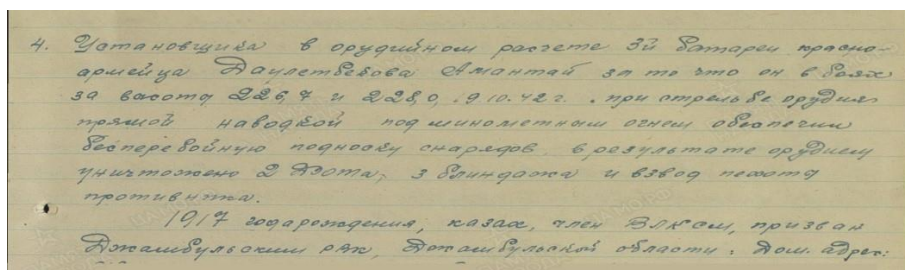 4. Установщика в орудийном расчете 3й батареи красно-
армейца Даулетбекова Амантай за то что он в боях
за высоты 226,7 и 228,0 . 9.10.42 г. . при стрельбе орудия
прямой наводкой под минометным огнем обеспечил
бесперебойную подноску снарядов, в результате орудием
уничтожено 2 Дзота, 3 блиндажа и взвод пехоты
противника.
1917 года рождения, казах, член ВЛКСМ, призван
Джамбульским РВК, Джамбульской области. Дом. адрес: